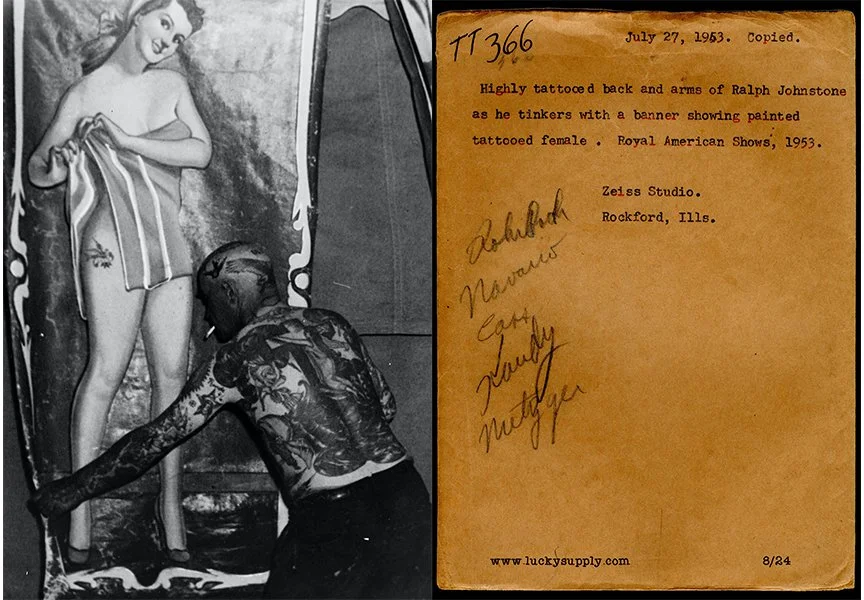 TT 366
July 27, 1953. Copied.
Highly tattooed back and arms of Ralph Johnstone
as he tinkers with a banner showing painted
tattooed female . Royal American Shows, 1953.
Zeiss Studio.
Rockford, Ills.
Navario
Carr
Randy
Metzger
www.luckysupply.com
8/24